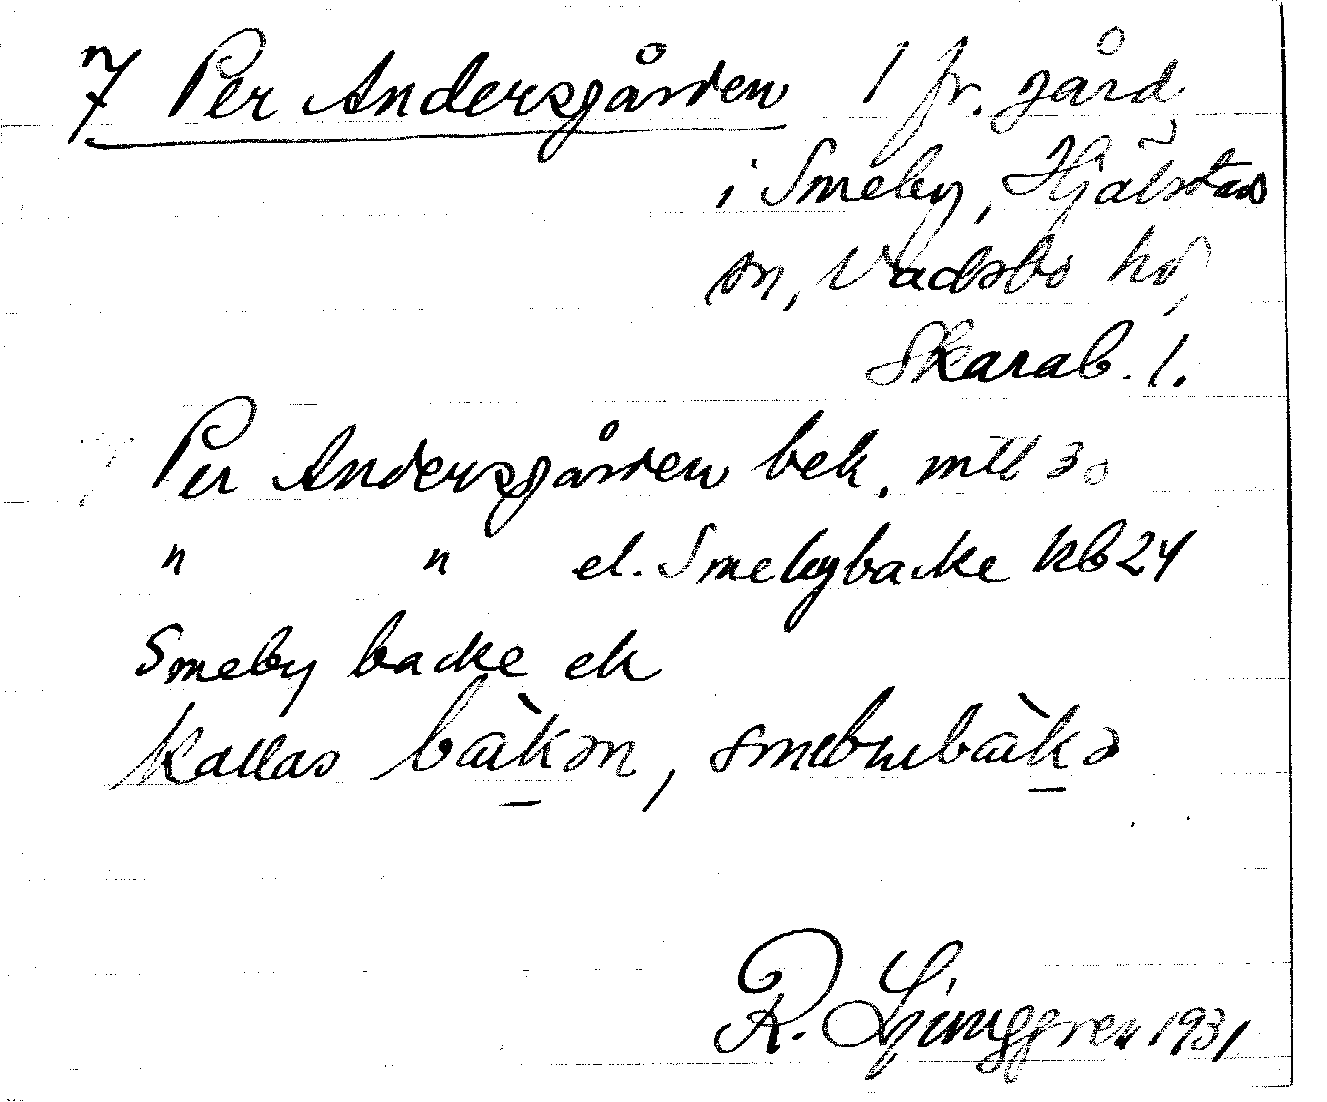 7 Per Andersgården 1 fr. gård
i Smeby, Hjälstads
sn, Vadsbo hd,
Skarab. l.
Per Andersgården bek. mtl 30
" " el. Smebybacke kb 24
Smeby backe ek
kallas bàkən, smebybàkə
R. Ljunggren 1931